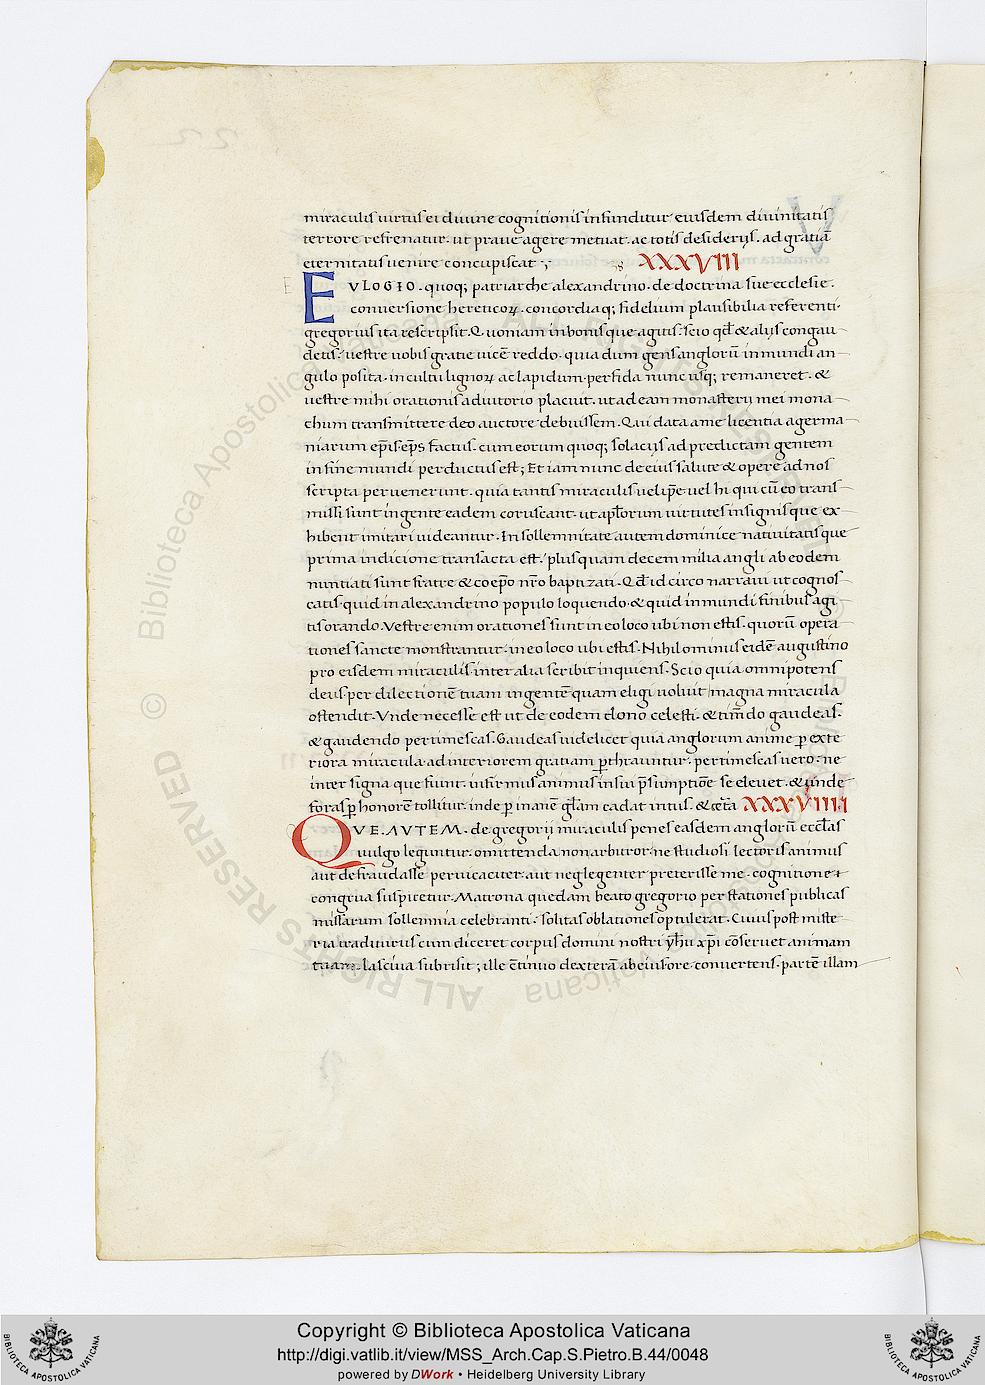 miraculis uirtus ei diuine cognitionis infunditur · eiusdem diuinitatis
terrore refrenatur · ut praue agere metuat · ac totis desiderijs · ad gratiā
eternitatis uenire concupiscat ; XXXVIII
EVLOGIO · quoq; patriarche alexandrino · de doctrina sue ecclesie ·
conuersione hereticoꝝ · concordiaq; fidelium plausibilia referenti ·
gregorius ita rescripsit · Quoniam in bonis que agitis · scio qđ & alijs congau
detis · uestre uobis gratie uicē reddo · quia dum gens angloꝛū in mundi an
gulo posita · in cultu lignoꝝ ac lapidum · perfida nunc usq; remaneret · &
uestre mihi orationis adiutorio placuit · ut ad eam monasterij mei mona
chum transmittere deo auctore debuissem · Qui data a me licentia a germa
niarum ep̄is · ep̄s factus · cum eorum quoq; solacijs ad predictam gentem
in fine mundi perductus est ; Et iam nunc de eius salute & opere ad nos
scripta peruenerunt · quia tantis miraculis uel ip̄e · uel hi qui cū eo trans
missi sunt in gente eadem coruscant · ut ap̄lorum uirtutes in signis que ex
hibent imitari uideantur · In sollemnitate autem dominice natiuitatis que
prima indicione transacta est · plus quam decem milia angli ab eodem
nuntiati sunt fratre & coep̄o nr̄o baptizati · Qđ idcirco narraui ut cognos
catis · quid in alexandrino populo loquendo · & quid in mundi finibus agi
tis orando · Vestre enim orationes sunt in eo loco ubi non estis · quorū opera
tiones sancte monstrantur · in eo loco ubi estis · Nihilominus eidē augustino
pro eisdem miraculis · inter alia scribit inquiens · Scio quia omnipotens
deus per dilectionē tuam in gentē quam eligi uoluit magna miracula
ostendit · Vnde necesse est ut de eodem dono celesti · & tim̄do gaudeas ·
& gaudendo pertimescas · Gaudeas uidelicet quia anglorum anime ꝑ exte
riora miracula ad interiorem gratiam ꝑthrauntur · pertimescas uero · ne
inter signa que fiunt · infirmus animus in sui p̄sumptiōe se eleuet · & unde
foras ꝑ honorē tollitur · inde ꝑ inanē gl̄am cadat intus · & cet̄a XXXVIIII
QVE · AVTEM · de gregorij miraculis penes easdem anglorū eccl̄as
uulgo leguntur · omittenda non arbitror · ne studiosi lectoris animus
aut defraudasse peruicaciter · aut neglegenter preterisse me · cognitione
congrua suspicetur · Matrona quedam beato gregorio per stationes publicas
missarum sollemnia celebranti · solitas oblationes optulerat · Cui us post miste
ria traditurus cum diceret corpus domini nostri yh̄u xp̄i cōseruet animam
tuam · lasciua subrisit ; ille c̄tinuo dexterā ab eius ore conuertens · partē illam
Copyright © Biblioteca Apostolica Vaticana
http://digi.vatlib.it/view/MSS_Arch.Cap.S.Pietro.B.44/0048
powered by DWork • Heidelberg University Library